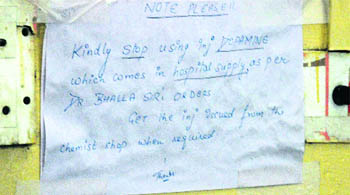 NOTE PLEASE!!
Kindly stop using inj DOPAMINE
which comes in hospital supply, as per
DR BHALLA SIR ORDERS
Get the inj issued from the
chemist shop when required
!
Thanks